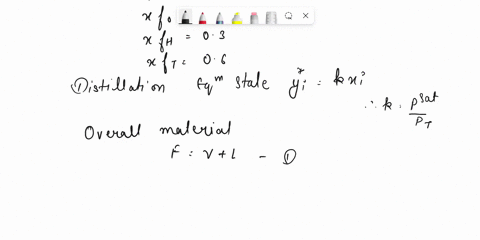 x f0
x fH = 0.3
x fT = 0.6
① Distillation Eqm State yi* = k xi
∴ k = PSat / PT
Overall material
F = V + L - ①